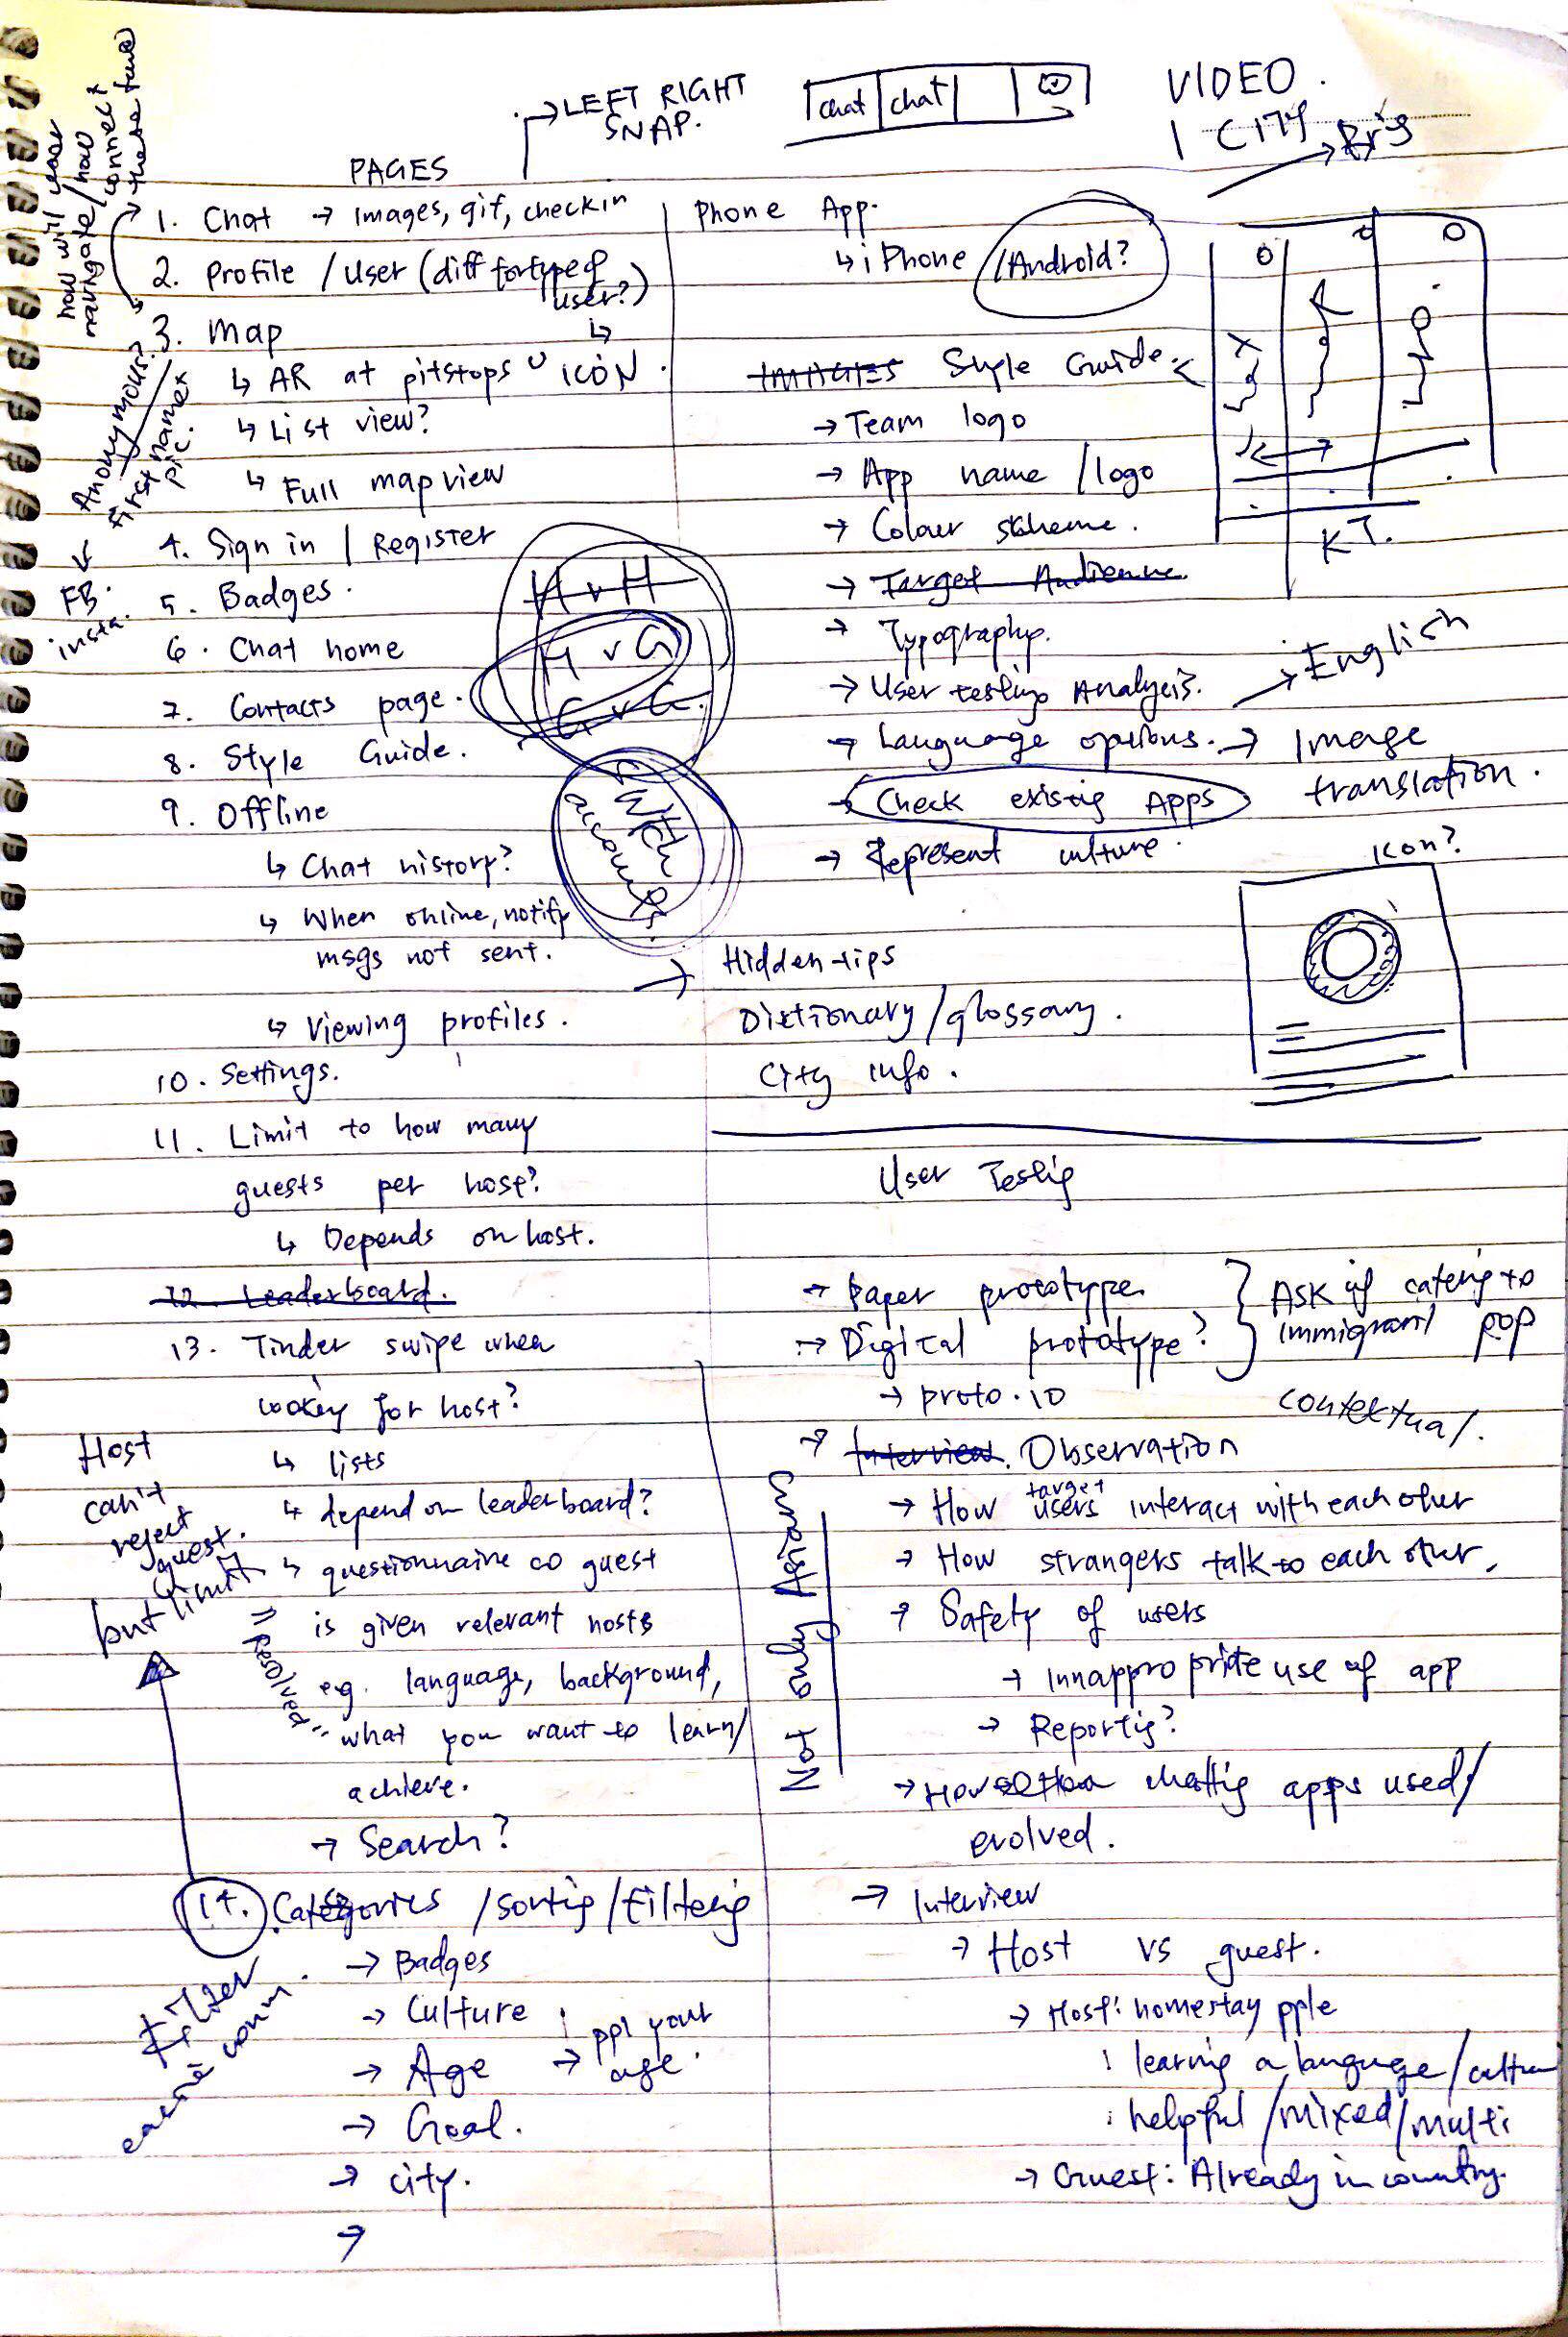 how will user
navigate/how
connect
these two
→ LEFT RIGHT
SNAP.
chat chat
VIDEO.
1 CITY → Bris
PAGES
1. Chat → images, gif, checkin
2. Profile / User (diff for type of
user?)
3. Map
↳ AR at pitstops
↳ ICON.
↳ List view?
↳ Full map view
Anonymous?
First name &
pic.
FB.
insta.
4. Sign in / Register
5. Badges.
6. Chat home
7. Contacts page.
8. Style Guide.
9. Offline
↳ Chat history?
↳ When online, notify
msgs not sent.
↳ Viewing profiles.
10. Settings.
11. Limit to how many
guests per host?
↳ Depends on host.
12. Leaderboard.
13. Tinder swipe when
looking for host?
↳ lists
↳ depend on leaderboard?
↳ questionnaire so guest
is given relevant hosts
e.g. language, background,
what you want to learn/
achieve.
→ Search?
Host
can't
reject
guest.
but limit
"Resolved"
14. Categories /sortig/filterig
→ Badges
→ Culture
→ Age → ppl your
age.
→ Goal.
→ city.
→
Filter
H v H
H v G
G v G.
switch
accounts.
Phone App.
↳ iPhone /Android?
IMAGES Style Guide.
→ Team logo
→ App name /logo
→ Colour scheme.
→ Target Audience
→ Typography.
→ User testing Analysis.
→ Language options. → Image
translation.
→ English
→ Check existig Apps
→ Represent culture.
KT.
icon?
→ Hidden tips
Dictionary/glossary.
City info.
User Testig
→ Paper prototype
→ Digital prototype?
→ proto.io
ASK if caterig to
immigrant pop
contextual.
→ Interview. Observation
→ How target users interact with each other
→ How strangers talk to each other,
→ Safety of users
→ Innappropriate use of app
→ Reportig?
→ chattig apps used/
evolved.
Not only Asians
→ Interview
→ Host vs guest.
→ Host: homestay pple
: learnig a language/culture
: helpful/mixed/multi
→ Guest: Already in country.